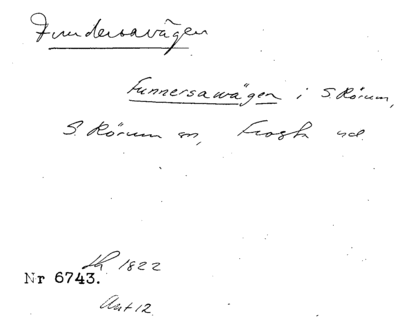 Fundersavägen
Funnersawägen i S. Rörum,
S. Rörum sn, Frosta hd.
Lh. 1822
Nr 6743.
Akt 12